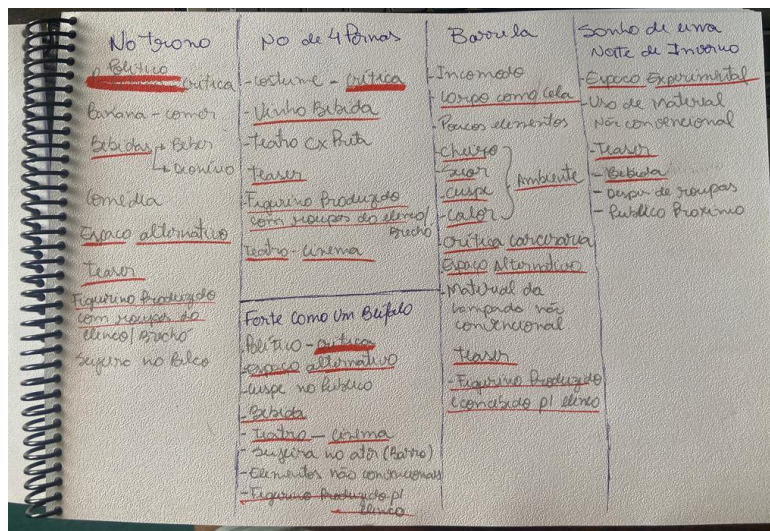 No trono
Político
crítica
Banana - comer
Bebidas → Beber
↳ Dionísio
Comédia
Espaço alternativo
Teaser
Figurino Produzido
com roupas do
elenco/Brechó
Sujeira no Palco
No de 4 Pornas
- costume - crítica
- Vinho Bebida
- Teatro Cx Preta
Teaser
- Figurino Produzido
com roupas do elenco/
Brechó
Teatro - cinema
Forte como um Búfalo
- Político - crítica
- Espaço alternativo
- Cuspe no Público
- Bebida
- Teatro - cinema
- Sujeira no ator (Barro)
- Elementos não convencionais
- Figurino Produzido p/
elenco
Barrela
- Incomodo
- Corpo como Cola
- Poucos elementos
- Cheiro
- Suor
- Cuspe
- Calor
Ambiente
- Crítica carceraria
Espaço Alternativo
- Material da
lampada não
convencional
Teaser
- Figurino Produzido
e concebido p/ elenco
Sonho de uma
Noite de Inverno
- Espaço Experimental
- Uso de Material
Não convencional
- Teaser
- Bebida
- Despir de roupas
- Publico Proximo